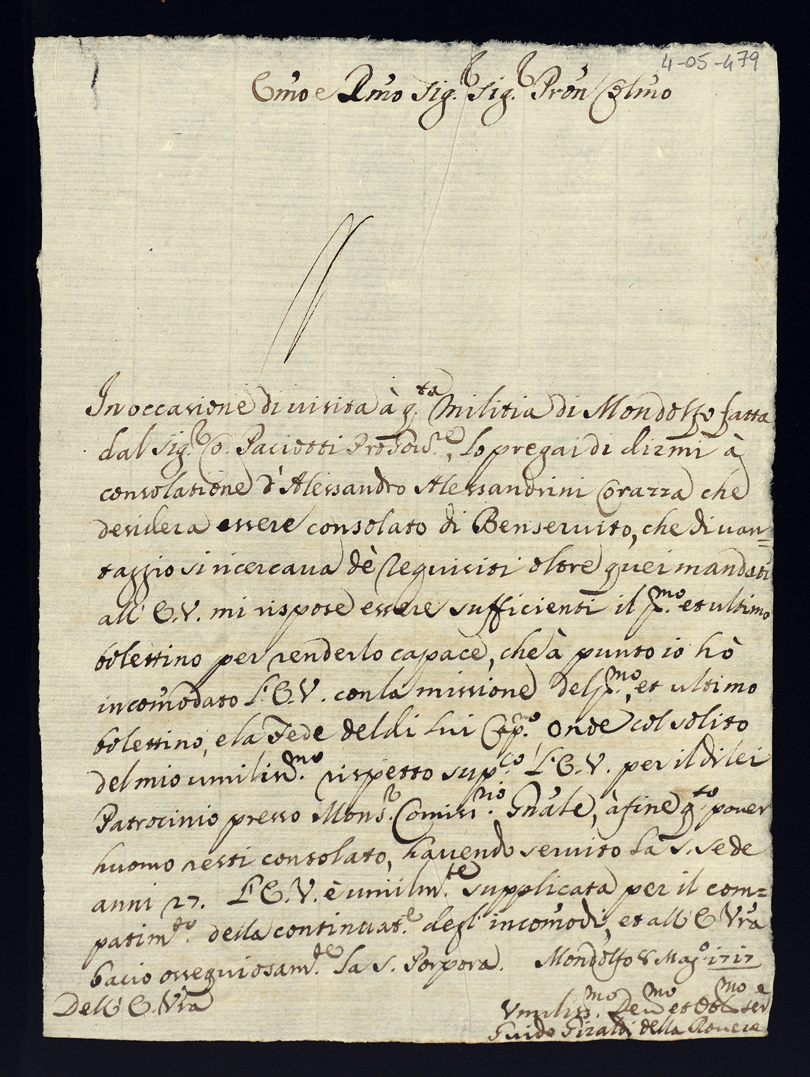 4-05-479
Emo e Rmo Sig.r Sig.r Pron Colmo
In occasione di visita à q.ta Militia di Mondolfo fatta
dal Sig.r Co. Paciotti lo pregai di dirmi à
consolatione d'Alessandro Alessandrini Corazza che
desidera essere consolato di Benservito, che di van=
taggio si ricercava dè requisiti oltre quei mandati
all'E.V. mi rispose essere sufficienti il p.mo et ultimo
bolettino per renderlo capace, che à punto io hò
incomodato l'E.V. con la missione del p.mo, et ultimo
bolettino, e la Fede del di lui Cap.no, onde col solito
del mio umiliss.mo rispetto sup.co l'E.V. per il di lei
Patrocinio presso Mons.r Comiss.rio Gnãle, à fine q.to pover
huomo resti consolato, havendo servito la S. Sede
anni 27. L'E.V. è umilm.te supplicata per il com=
patim.to della continuat.e degl'incomodi, et all'E. Vrã
bacio ossequiosam.te la S. Porpora. Mondolfo 8 Mag.o 1717
Dell'E. Vrã
Umiliss.mo Dev.mo et Obl.mo ser.e
Guido Giraldi della Rovere